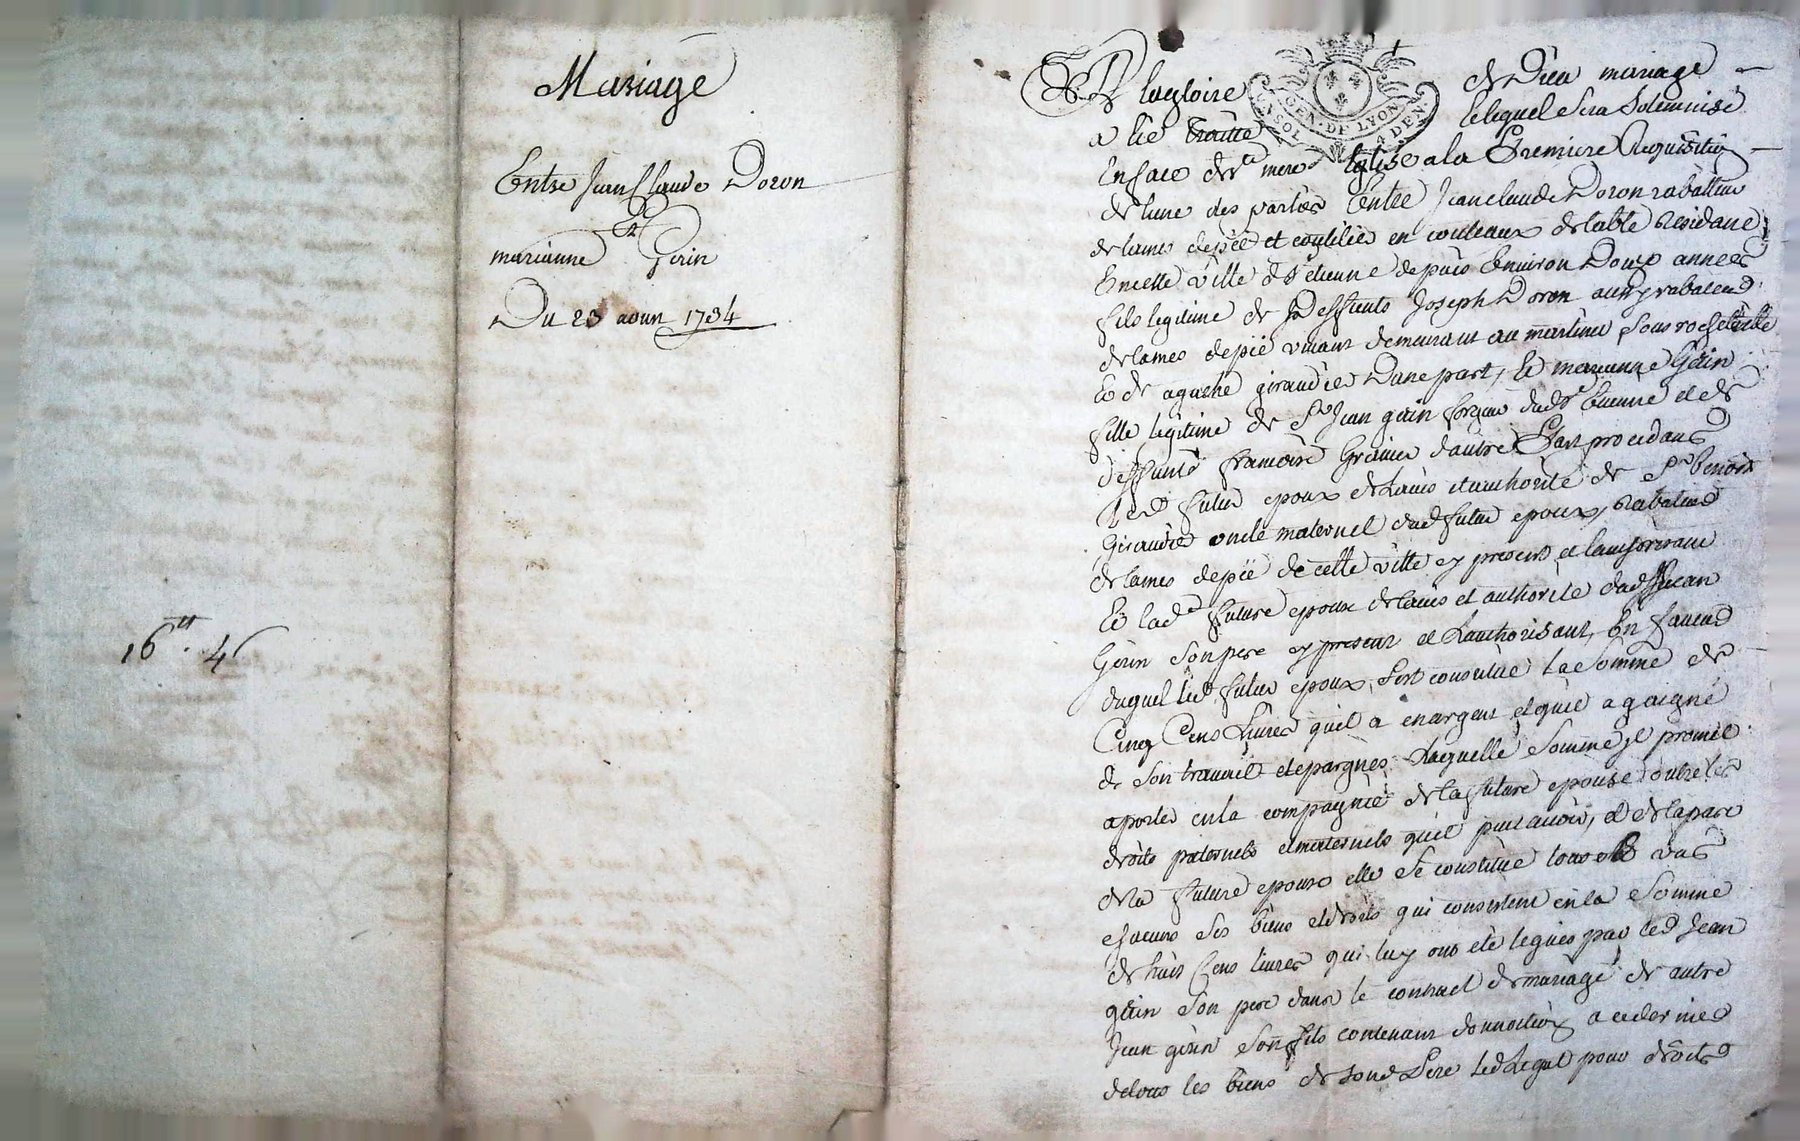 Mariage
Entre Jean Claude Doron
Et
marianne Gerin
Du 23 aoust 1734
16ᵗᵗ. 4ˢ
A la gloire de Dieu mariage
a êté traitté lequel sera Solemnisé
En face de Sᵗᵉ mere Eglise a la Premiere Requisition
de lune des parties Entre Jean claude Doron rabatteur
de lames depée et coutelier en couteaux de table Residant
En cette ville de Sᵗ etienne depuis Environ Douze années
fils legitime de Deffunts Joseph Doron aussy rabateur
de lames depée vivant demeurant au martinet sous rochetaillée
Et de agathe giraudier Dune part, Et marianne Gerin
fille legitime de Sʳ Jean gerin forgeur dud Sᵗ Etienne et de
deffunte francoise Grimier dautre Part procedant
led futur epoux de Lavis et authorité de Sʳ benoit
Giraudier oncle maternel dud futur epoux, rabateur
de lames depée de cette ville cy present et lauthorisant
Et lad future epouse de lavis et authorité dud Sʳ Jean
Gerin son pere cy present et Lauthorisant, En faveur
duquel led futur epoux, sest constitué La Somme de
Cinq Cens Livres quil a en argent et quil a gaigné
de Son travail et epargnes Laquelle Somme il promet
aporter en la compagnie de la future epouse outre les
droits paternels et maternels quil peut avoir, et de la part
de la future epouse elle Se constitue tous et vns
chacuns Ses biens et droits qui consistent en la Somme
de huit Cens livres qui luy ont eté legués par led Jean
gerin Son pere dans le contract de mariage de autre
Jean gerin Son fils contenant donnation a ce dernier
de tous les biens de sond Pere led Legat pour droits